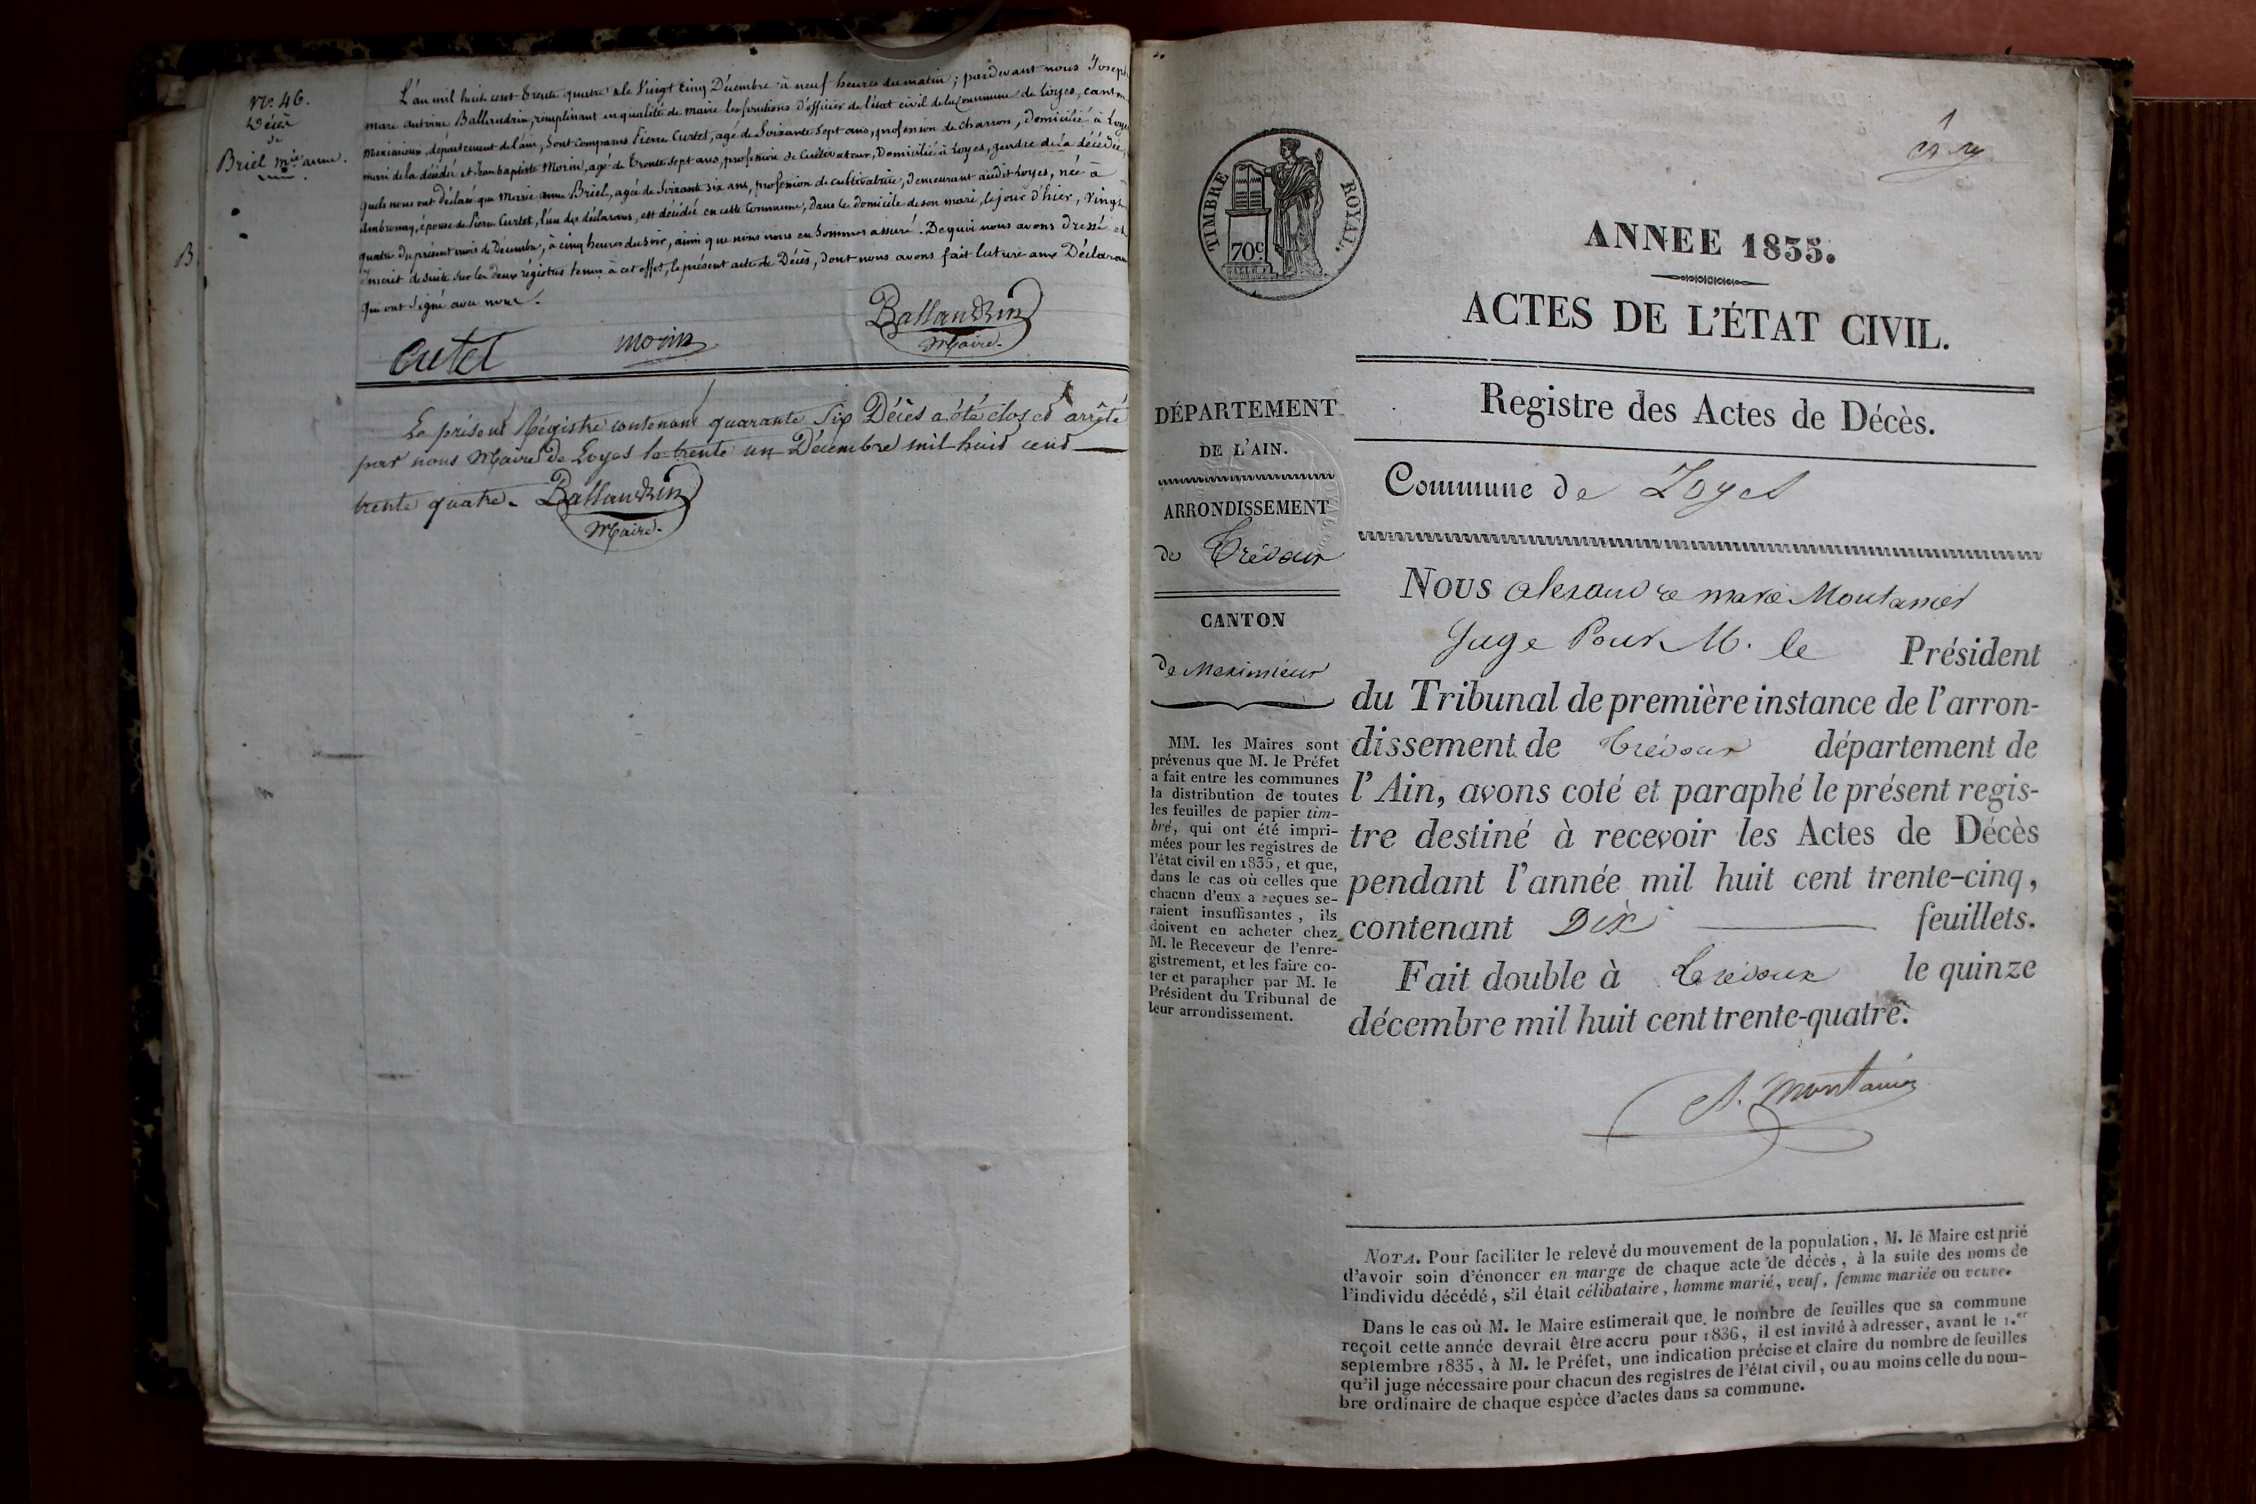 N.° 46.
Décès
de
Briel M.ie anne.
B
L'an mil huit cent trente quatre & le vingt cinq Décembre à neuf heures du matin ; pardevant nous Joseph
marc antoine Ballandrin, remplissant en qualité de maire les fonctions d'officier de l'état civil de la Commune de Loyes, canton
Meximieux, département de l'ain, sont comparus Pierre Curtet, agé de Soixante Sept ans, profession de charron, domicilié à Loyes
mari de la décédée et Jean baptiste Morin, agé de trente sept ans, profession de Cultivateur, Domicilié à Loyes, gendre de la décédée,
quels nous ont déclaré que Marie anne Briel, agée de Soixante six ans, profession de cultivatrice, demeurant audit Loyes, née à
ambronay, épouse de Pierre Curtet, l'un des déclarans, est décédée en cette Commune, dans le domicile de son mari, le jour d'hier, vingt
quatre du présent mois de Décembre, à cinq heures du soir, ainsi que nous nous en sommes assuré. De quoi nous avons dressé et
inscrit de suite sur les deux régistres tenus à cet effet, le présent acte de Décès, dont nous avons fait lecture aux Déclarans
qui ont signé avec nous.
Curtet
morin
Ballandrin
Maire.
Le présent Régistre contenant quarante Six Décès a été clos et arrêté
par nous Maire de Loyes le trente un Décembre mil huit cent
trente quatre. Ballandrin
Maire.
1
TIMBRE ROYAL.
70c
ANNEE 1835.
ACTES DE L'ÉTAT CIVIL.
Registre des Actes de Décès.
Commune de Loyes
DÉPARTEMENT
DE L'AIN.
ARRONDISSEMENT
de Trévoux
CANTON
de Meximieux
MM. les Maires sont
prévenus que M. le Préfet
a fait entre les communes
la distribution de toutes
les feuilles de papier tim-
bré, qui ont été impri-
mées pour les registres de
l'état civil en 1835, et que,
dans le cas où celles que
chacun d'eux a reçues se-
raient insuffisantes, ils
doivent en acheter chez
M. le Receveur de l'enre-
gistrement, et les faire co-
ter et parapher par M. le
Président du Tribunal de
leur arrondissement.
Nous alexandre marie Montanier
Juge Pour M. le Président
du Tribunal de première instance de l'arron-
dissement de trévoux département de
l'Ain, avons coté et paraphé le présent regis-
tre destiné à recevoir les Actes de Décès
pendant l'année mil huit cent trente-cinq,
contenant Dix feuillets.
Fait double à trévoux le quinze
décembre mil huit cent trente-quatre.
A. Montanier
NOTA. Pour faciliter le relevé du mouvement de la population, M. le Maire est prié
d'avoir soin d'énoncer en marge de chaque acte de décès, à la suite des noms de
l'individu décédé, s'il était célibataire, homme marié, veuf, femme mariée ou veuve.
Dans le cas où M. le Maire estimerait que le nombre de feuilles que sa commune
reçoit cette année devrait être accru pour 1836, il est invité à adresser, avant le 1.er
septembre 1835, à M. le Préfet, une indication précise et claire du nombre de feuilles
qu'il juge nécessaire pour chacun des registres de l'état civil, ou au moins celle du nom-
bre ordinaire de chaque espèce d'actes dans sa commune.